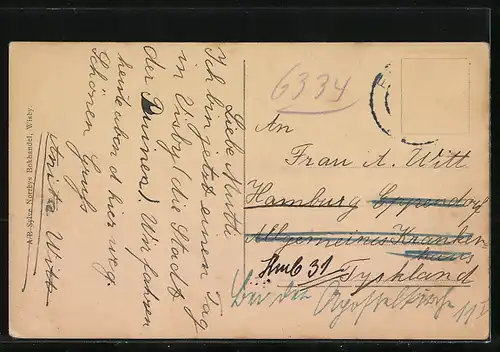 Liebe Mutti
Ich bin jetzt einen Tag
in Visby (die Stadt
der Ruinen). Wir fahren
heute abend hier weg.
Schönen Gruß
Anita Witt
A/B Sylve Norrbys Bokhandel, Wisby.
6334
An
Frau A. Witt
Hamburg Eppendorf
Allgemeines Kranken-
haus
Hmb 31
Tyskland
bei der Apostelkirche 11